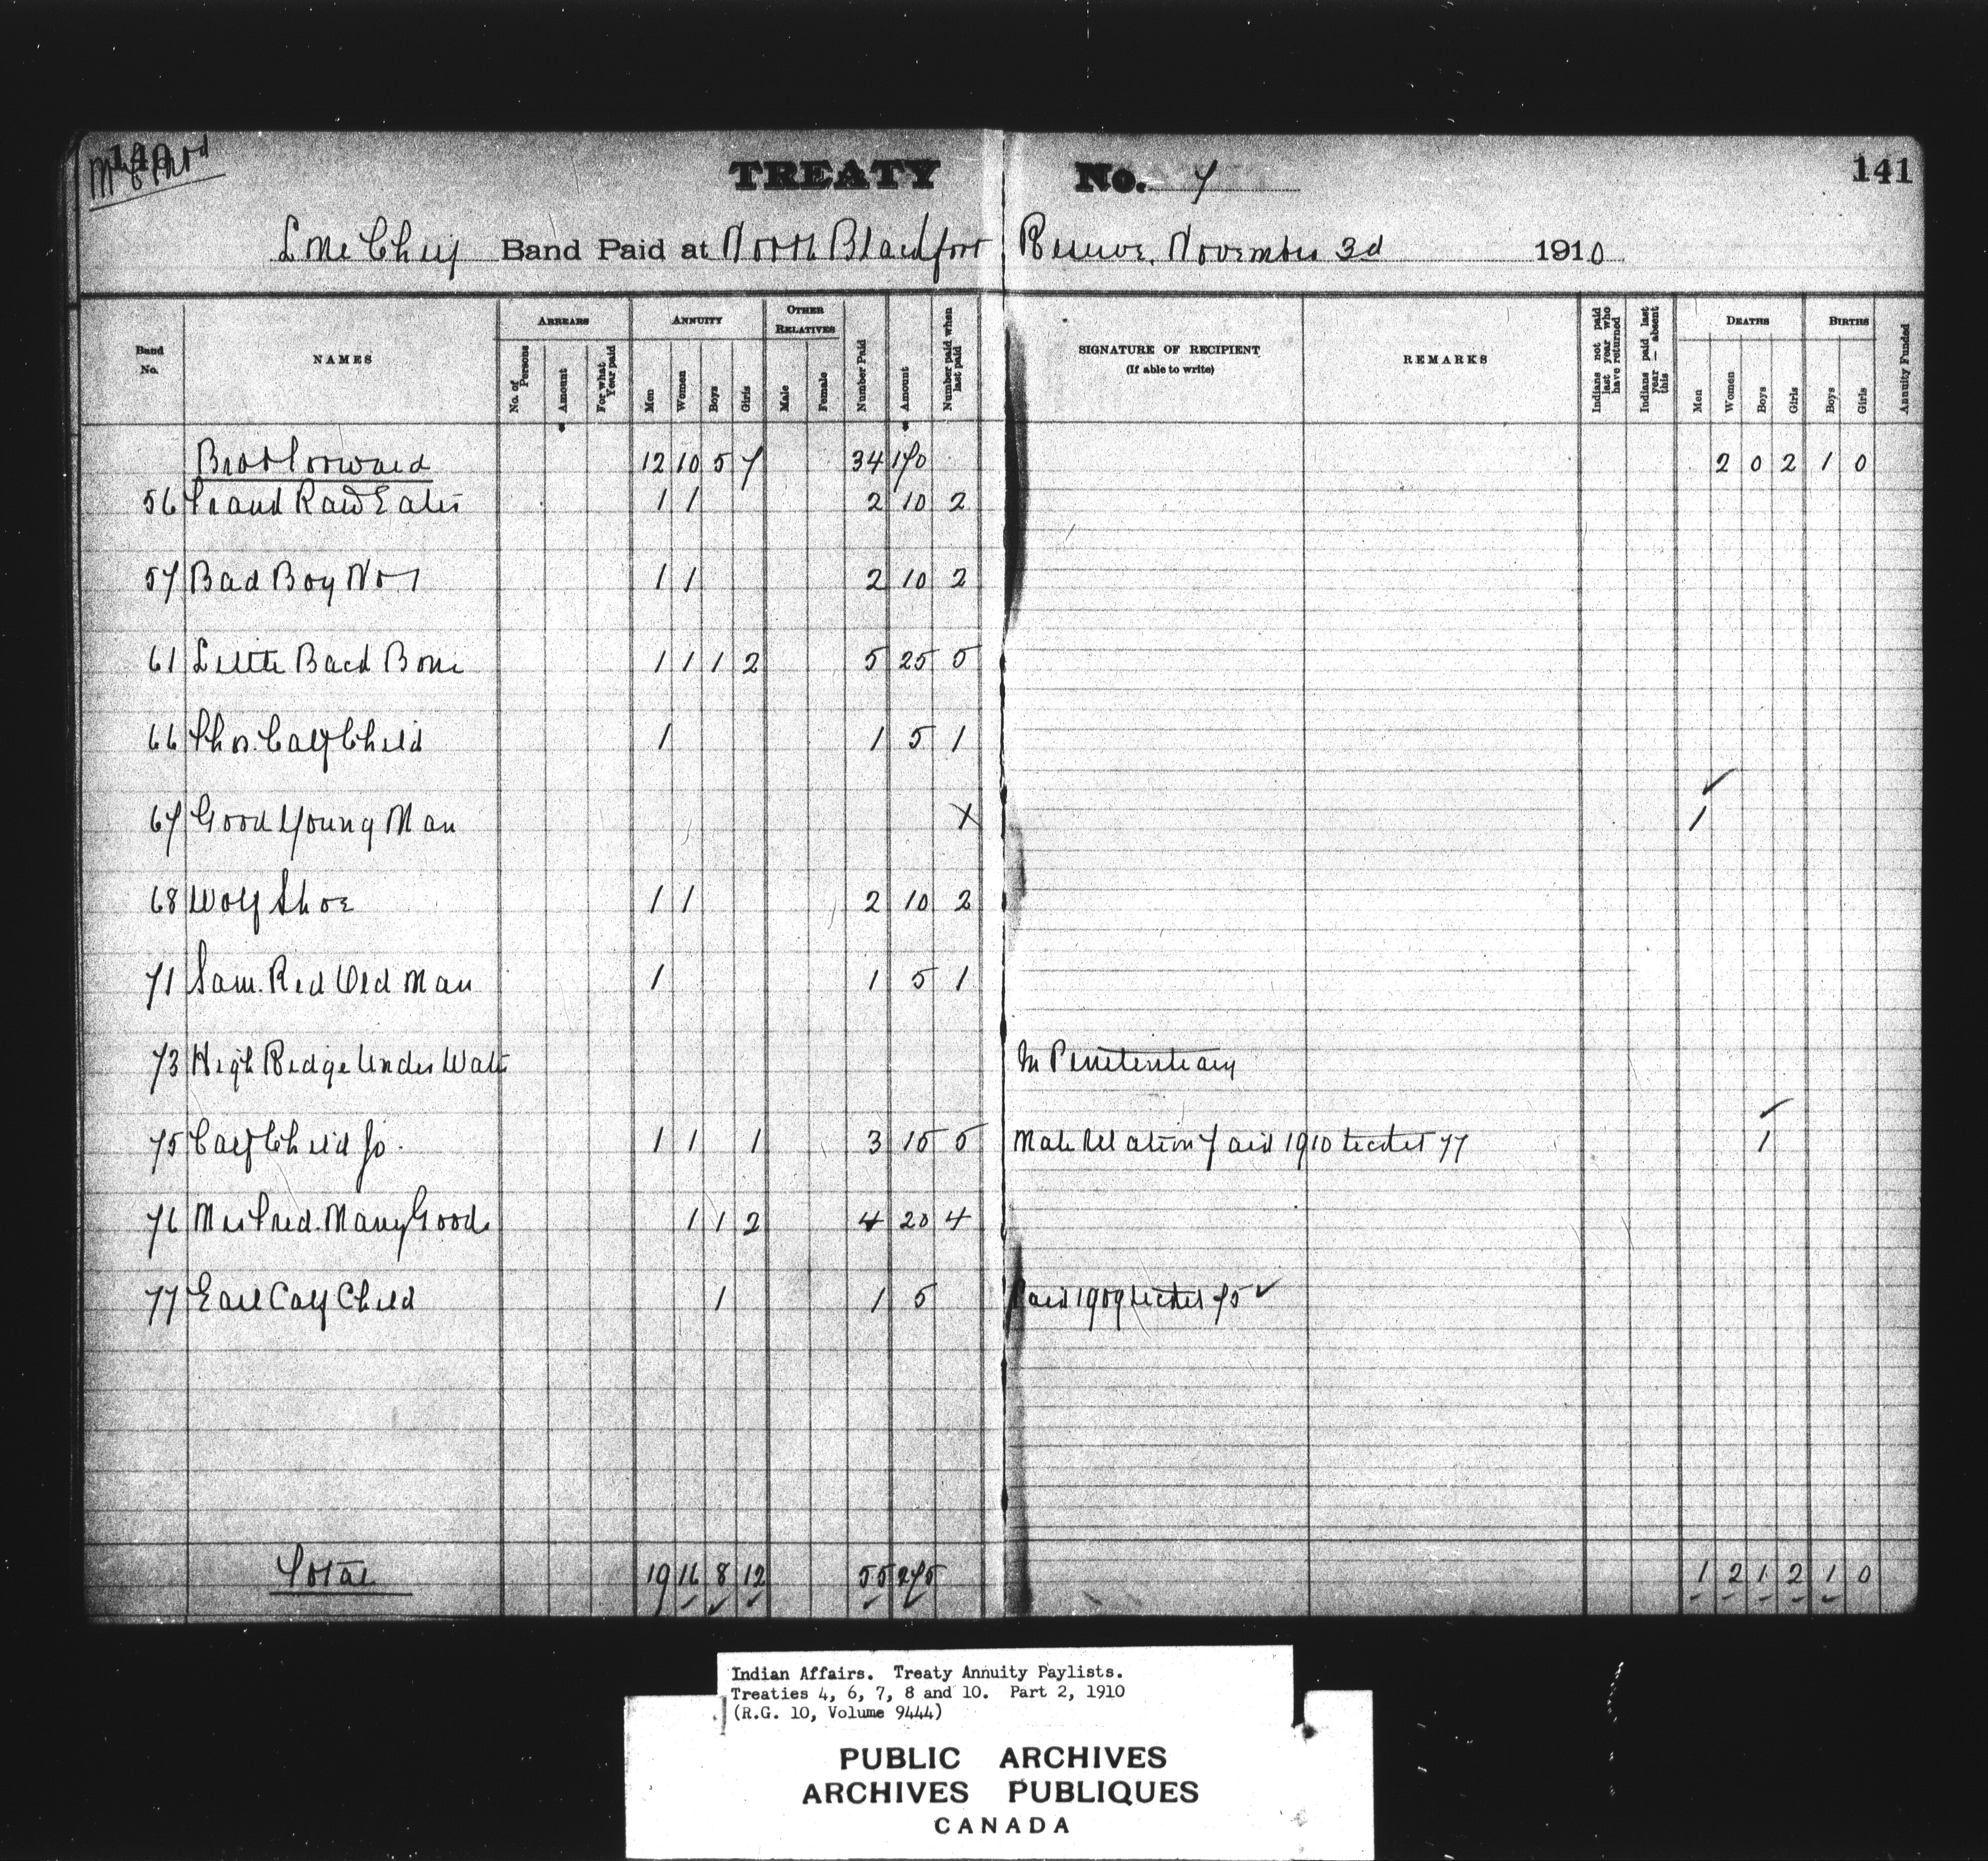 140
TREATY No. 7 141
Lone Chief Band Paid at North Blackfoot Reserve, November 3d 1910
Band No. NAMES ARREARS ANNUITY OTHER RELATIVES Number Paid Amount Number paid when last paid SIGNATURE OF RECIPIENT (If able to write) REMARKS Indians not paid last year who have returned Indians paid last year — absent this DEATHS BIRTHS Annuity Funded
No. of Persons Amount For what Year paid Men Women Boys Girls Male Female Men Women Boys Girls Boys Girls
Brot Forward 12 10 5 7 34 170 2 0 2 1 0
56 Raw Eater 1 1 2 10 2
57 Bad Boy No 1 1 1 2 10 2
61 Little Back Bone 1 1 1 2 5 25 5
66 Thos. Calf Child 1 1 5 1
67 Good Young Man X 1
68 Wolf Shoe 1 1 2 10 2
71 Sam. Red Old Man 1 1 5 1
73 High Ridge Under Wate In Penitentiary
75 Calf Child Jo. 1 1 1 3 15 5 Male Relation paid 1910 ticket 77 1
76 Mrs Fred. Many Goods 1 1 2 4 20 4
77 Earl Calf Child 1 1 5 Paid 1909 ticket 75 ✓
Total 19 16 8 12 55 275 1 2 1 2 1 0
Indian Affairs. Treaty Annuity Paylists.
Treaties 4, 6, 7, 8 and 10. Part 2, 1910
(R.G. 10, Volume 9444)
PUBLIC ARCHIVES
ARCHIVES PUBLIQUES
CANADA